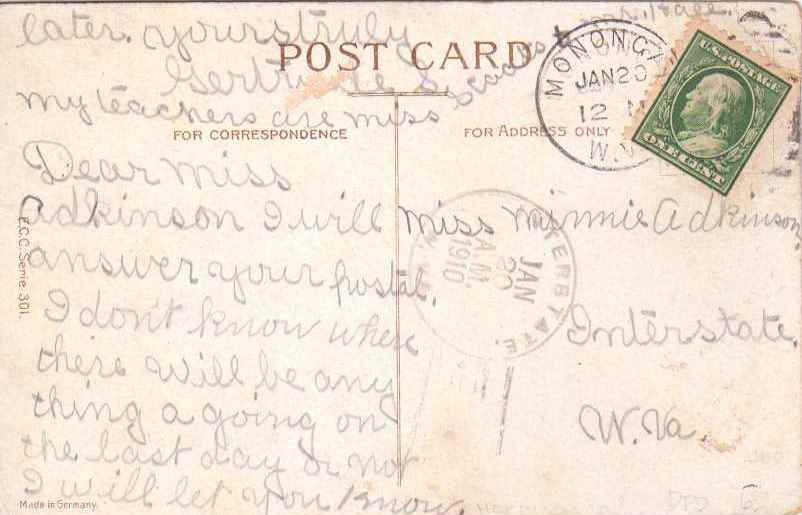 later. yours truly
Gertrude S
My teachers are miss
POST CARD
FOR CORRESPONDENCE
FOR ADDRESS ONLY
Dear Miss
Adkinson I will
answer your postal.
I don't know where
there will be any
thing a going on
the last day or not
I will let you know
E.C.C. Serie 301.
Made in Germany.
JAN 20
12 M
W.V
U.S. POSTAGE
ONE CENT
INTERSTATE.
JAN
20
A.M.
1910
miss minnie Adkinson
Interstate.
W. Va.